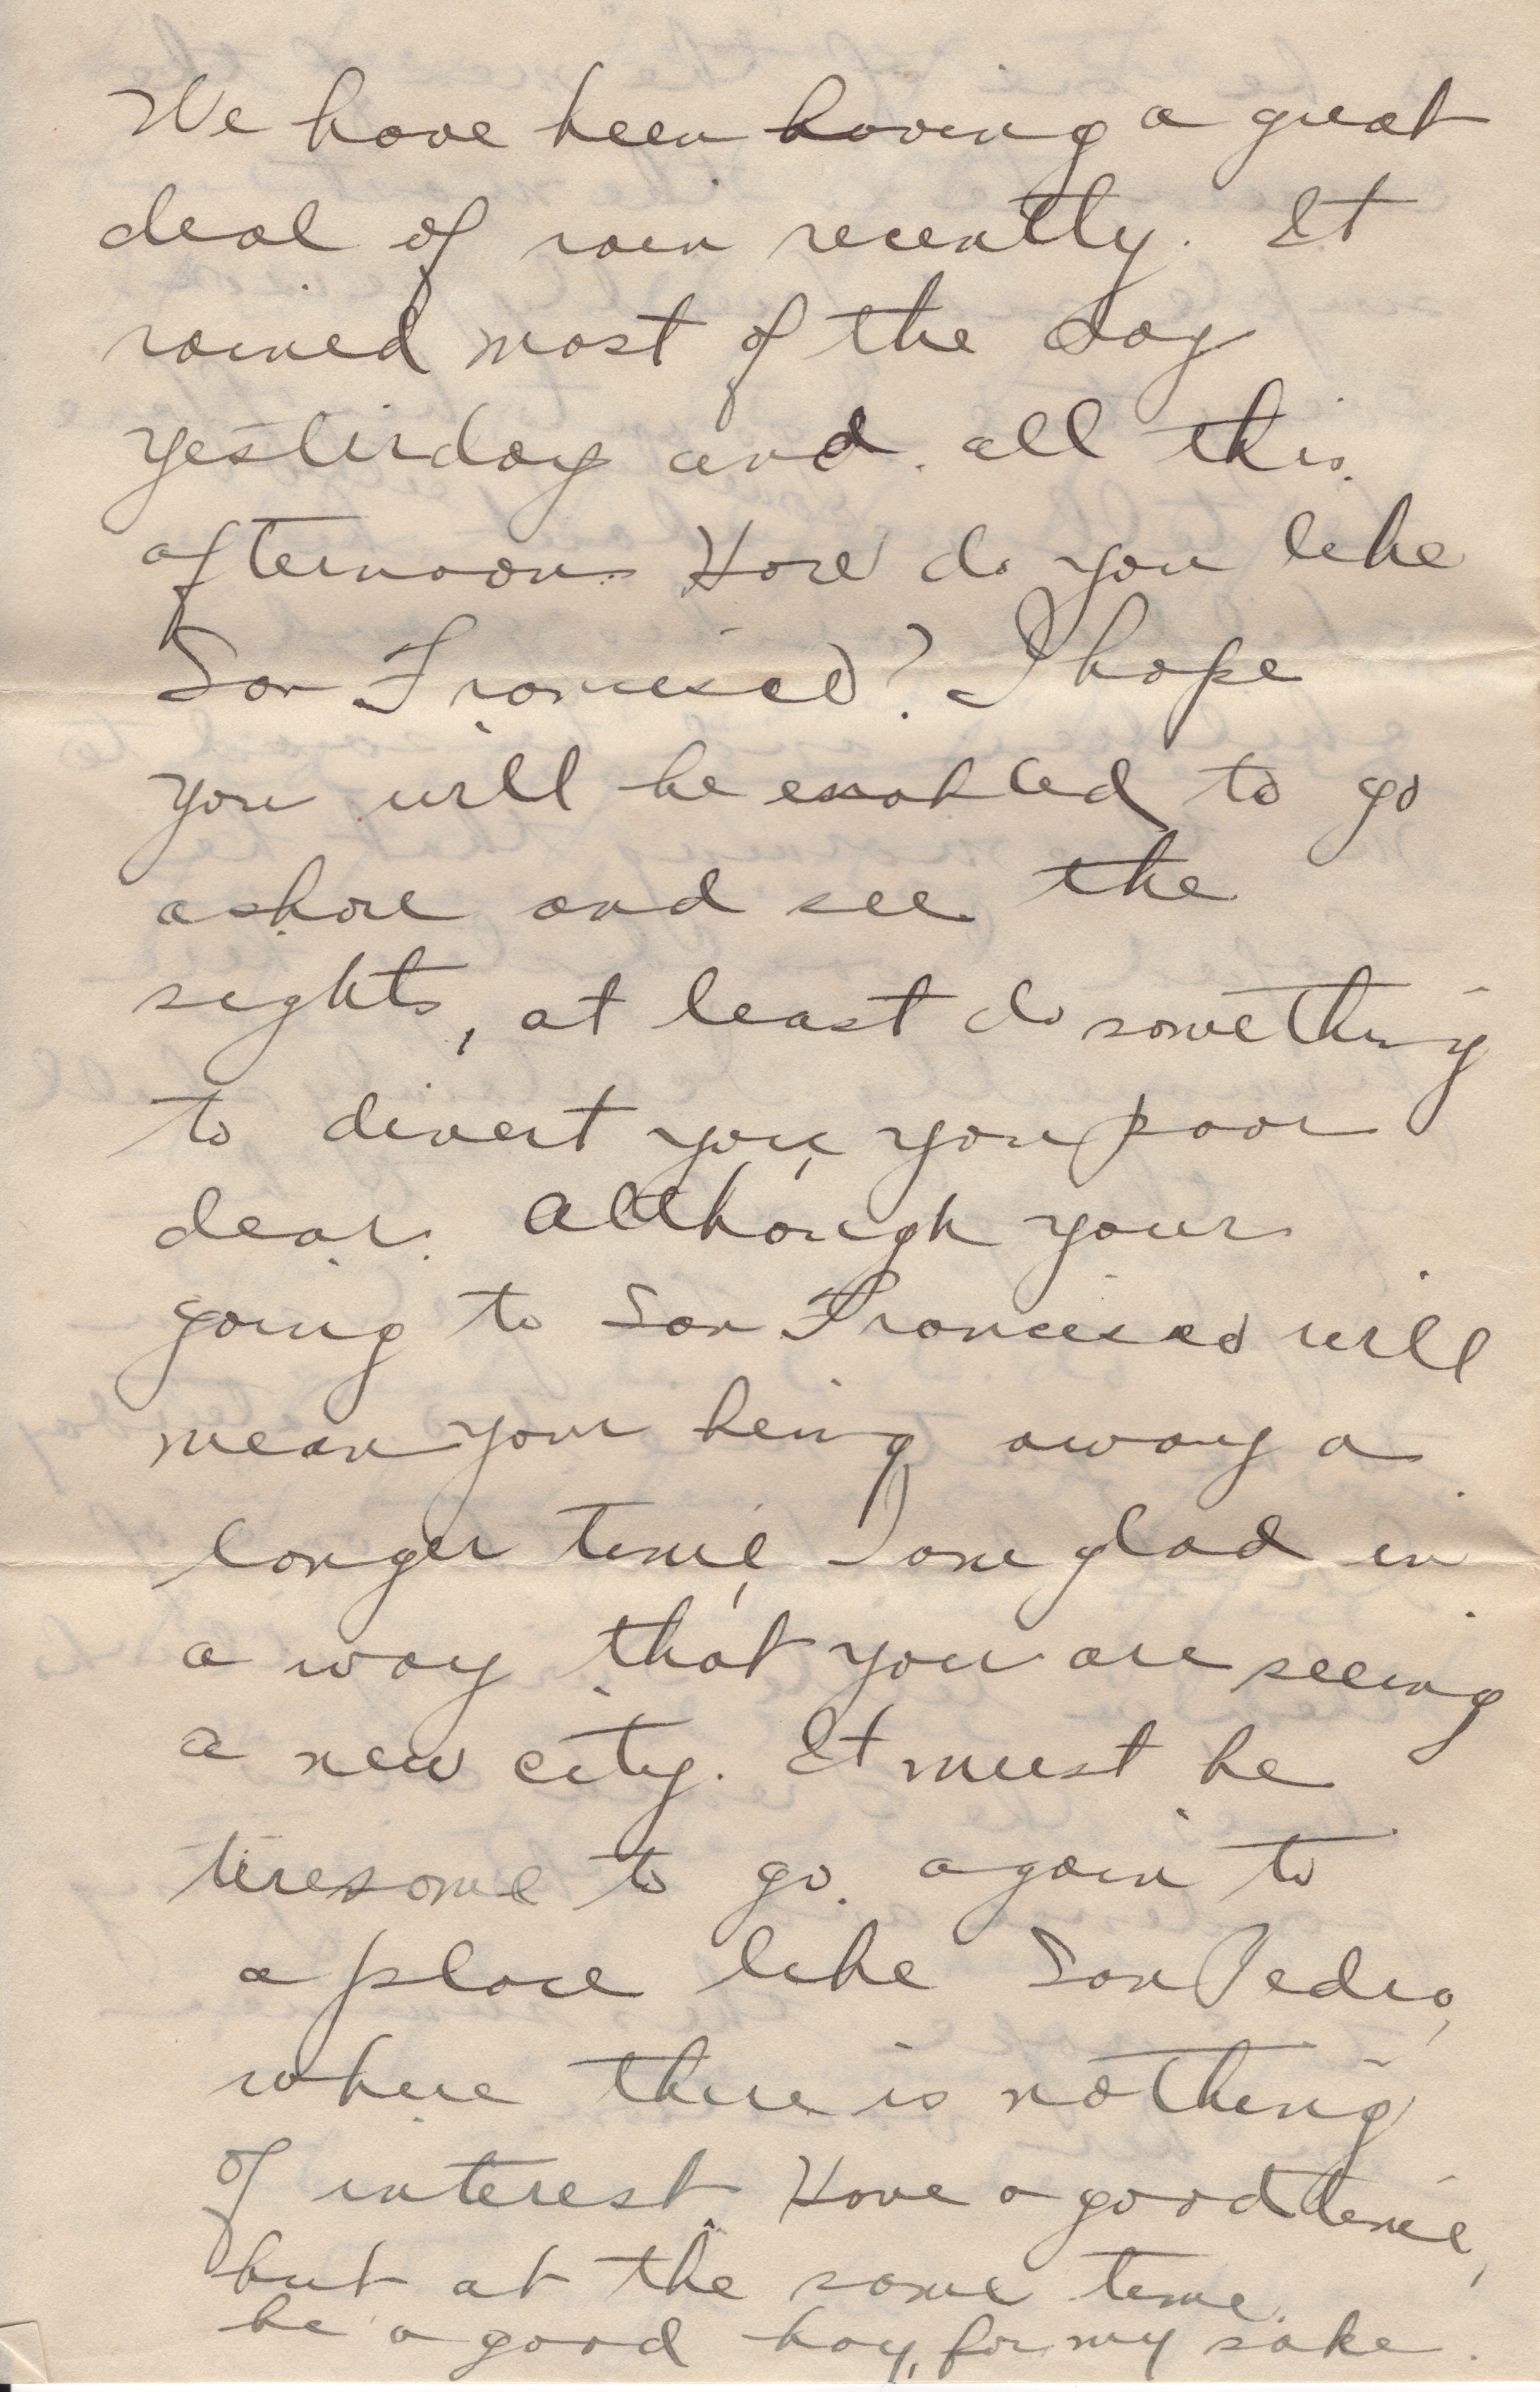 We have been having a great
deal of rain recently. It
rained most of the day
yesterday and all this
afternoon. How do you like
San Francisco? I hope
you will be enabled to go
ashore and see the
sights, at least do something
to divert you, you poor
dear. Although your
going to San Francisco will
mean your being away a
longer time, I am glad in
a way that you are seeing
a new city. It must be
tiresome to go again to
a place like San Pedro,
where there is nothing
of interest. Have a good time,
but at the same time
be a good boy, for my sake.